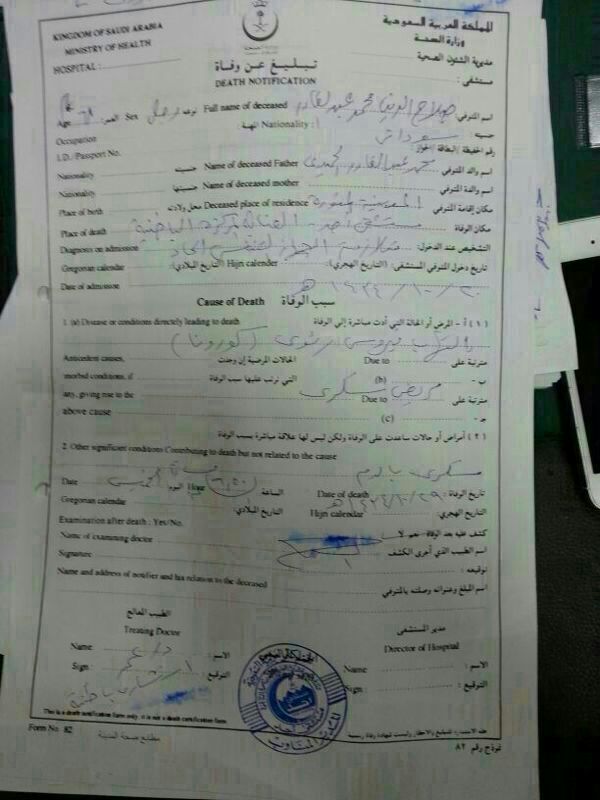 KINGDOM OF SAUDI ARABIA
MINISTRY OF HEALTH
HOSPITAL :
المملكة العربية السعودية
وزارة الصحة
مديرية الشئون الصحية
مستشفى :
تبليغ عن وفاة
DEATH NOTIFICATION
Age العمر: Sex نوعه Full name of deceased محمد عبدالقادر اسم المتوفي:
Occupation المهنة: Nationality : جنسيته
I.D./ Passport No. رقم الحفيظة / البطاقة / الجواز
Nationality جنسيته Name of deceased Father محمد عبدالقادر اسم والد المتوفي
Nationality جنسيتها Name of deceased mother اسم والدة المتوفي
Place of birth محل ولادته Deceased place of residence المدينة المنورة مكان إقامة المتوفي
Place of death مستشفى أحد مكان الوفاة
Diagnosis on admission التشخيص عند الدخول:
Gregorian calendar (التاريخ الميلادي): Hijri calender تاريخ دخول المتوفي المستشفى: (التاريخ الهجري)
Date of admission ١٤٣٤/١٠/٢٠ هـ
Cause of Death سبب الوفاة
1. (a) Disease or conditions directely leading to death (١) أ - المرض أو الحالة التي أدت مباشرة إلى الوفاة
التهاب فيروسي رئوي (كورونا)
Antecedent causes, الحالات المرضية إن وجدت Due to مترتبة على
morbid conditions, if التي ترتب عليها سبب الوفاة (b) ب -
any, giving rise to the مريض سكري Due to مترتبة على
above cause (c) جـ -
(٢) أمراض أو حالات ساعدت على الوفاة ولكن ليس لها علاقة مباشرة بسبب الوفاة
2. Other significant conditions Contributing to death but not related to the cause
سكري بالدم
Date اليوم الخميس Hour الساعة ٦,٢٠ Date of death ١٤٣٤/١٠/٢٩ هـ تاريخ الوفاة:
Gregorian calendar التاريخ الميلادي: Hijri calender التاريخ الهجري:
Examination after death : Yes/No. كشف عليه بعد الوفاة: نعم لا
Name of examining doctor اسم الطبيب الذي أجرى الكشف
Signature توقيعه :
Name and address of notifier and has relation to the deceased اسم المبلغ وعنوانه وصلته بالمتوفي
الطبيب المعالج
Treating Doctor
Name الاسم :
Sign : التوقيع :
مدير المستشفى
Director of Hospital
Name الاسم :
Sign : التوقيع :
This is a death notification form only, it is not a death certification form.
هذه الاستمارة للتبليغ والإخطار وليست شهادة وفاة رسمية
Form No. 82
مطابع صحة المدينة
نموذج رقم ٨٢
المدير المناوب